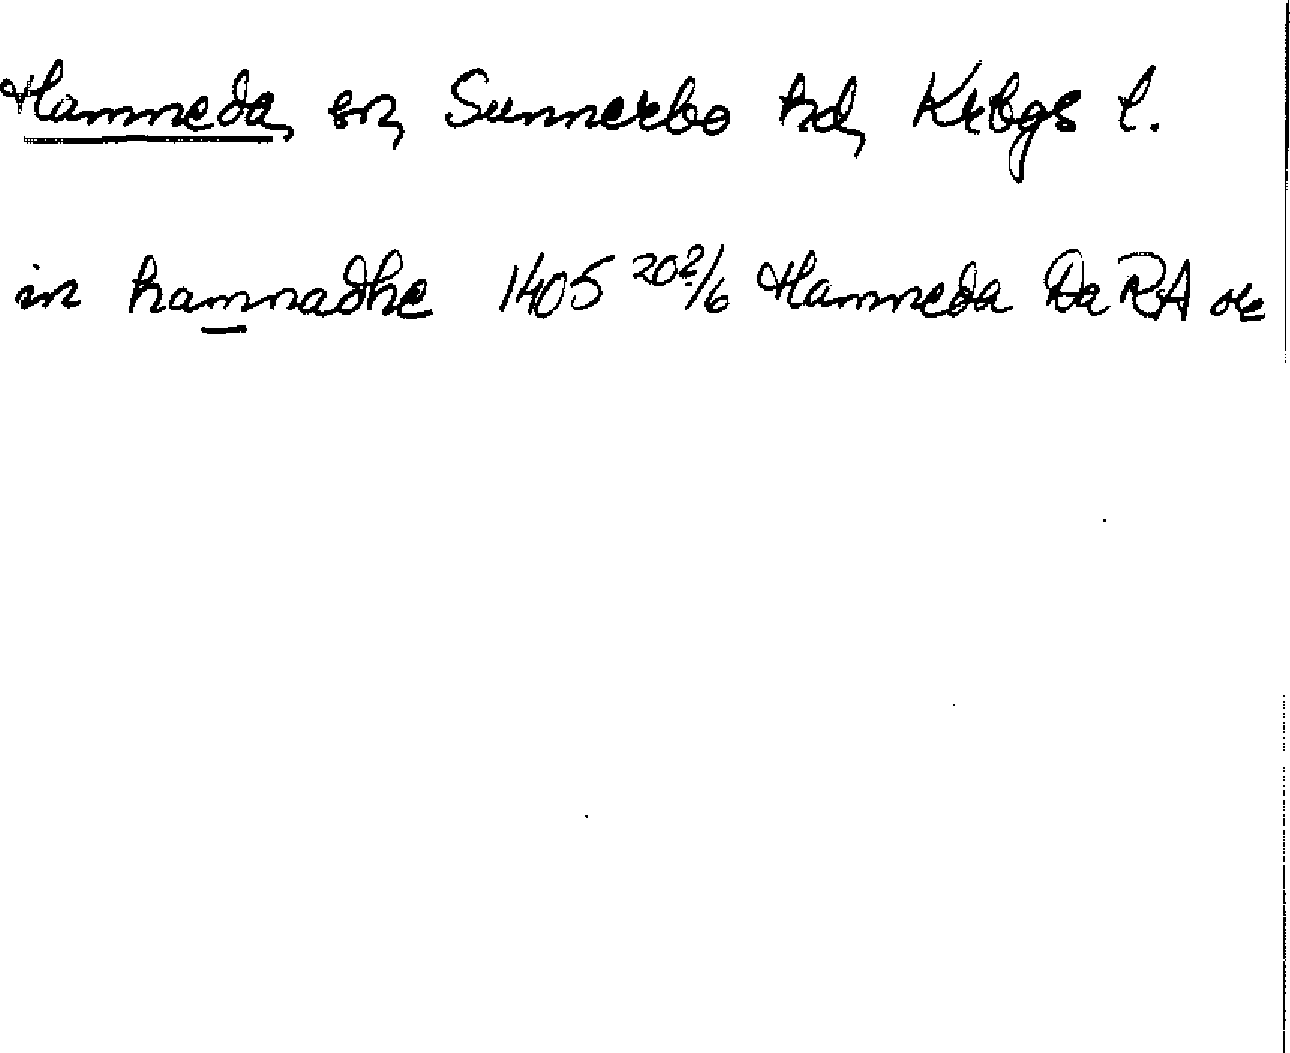 Hamneda, sn, Sunnerbo hd, Krbgs l.
in hamnadhe 1405 20?/6 Hamneda Da RA or